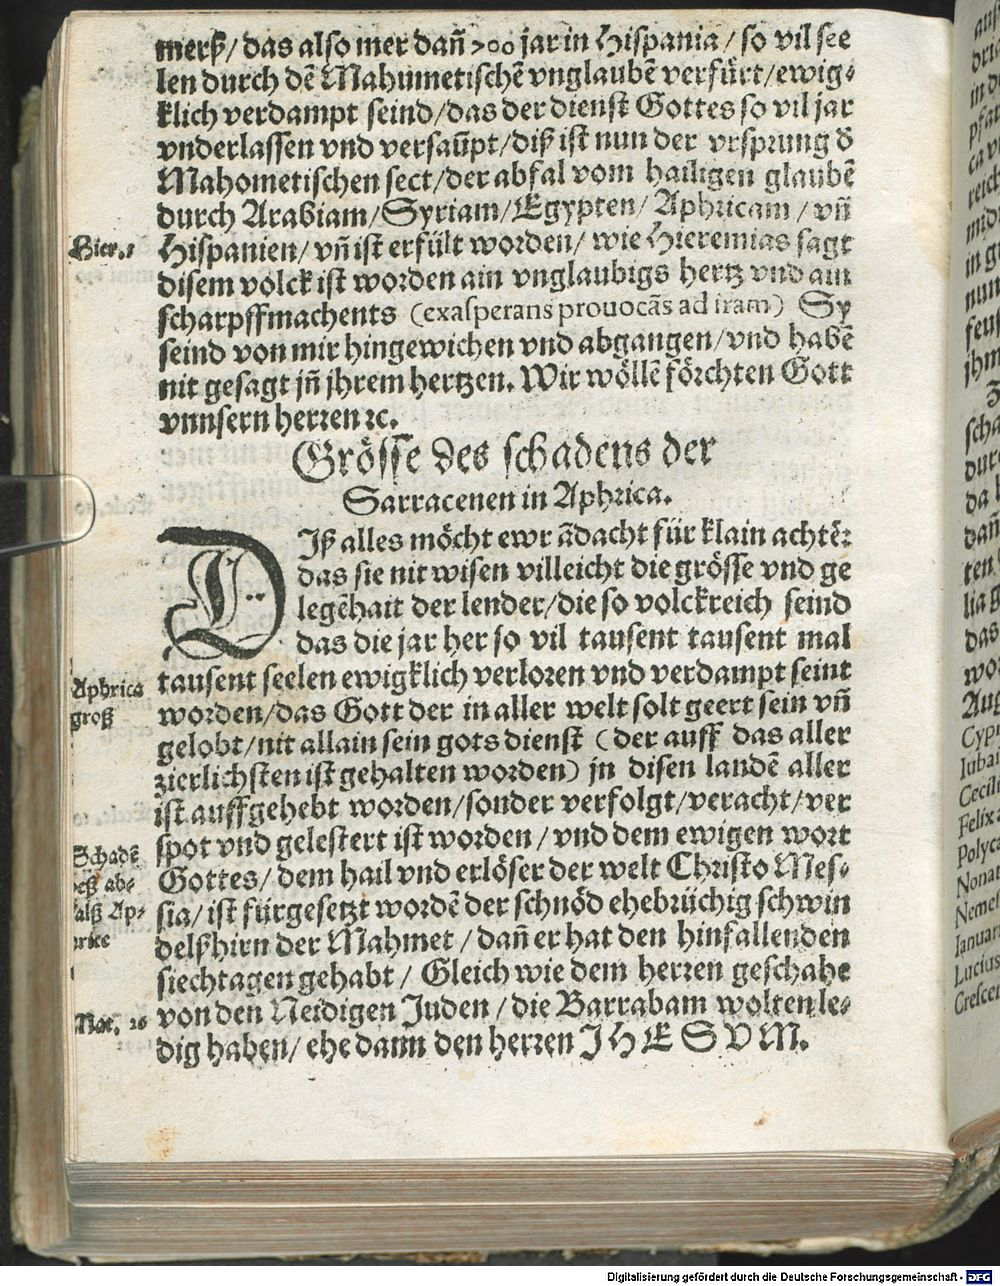 merß/das also mer dañ 700 jar in Hispania/so vil see
len durch dē Mahumetischē vnglaubē verfürt/ewig⸗
klich verdampt seind/das der dienst Gottes so vil jar
vnderlassen vnd versaūpt/diß ist nun der vrsprung d
Mahometischen sect/der abfal vom hailigen glaubē
durch Arabiam/Syriam/Egypten/Aphricam/vñ
Hier.
Hispanien/vñ ist erfült worden/wie Hieremias sagt
disem volck ist worden ain vnglaubigs hertz vnd ain
scharpffmachents (exasperans prouocās ad iram) Sy
seind von mir hingewichen vnd abgangen/vnd habē
nit gesagt jñ jhrem hertzen. Wir wöllē förchten Gott
vnnsern herren ꝛc.
Grösse des schadens der
Sarracenen in Aphrica.
DIß alles möcht ewr ādacht für klain achtē:
das sie nit wisen villeicht die grösse vnd ge
legēhait der lender/die so volckreich seind
das die jar her so vil tausent tausent mal
Aphrica
groß
tausent seelen ewigklich verloren vnd verdampt seint
worden/das Gott der in aller welt solt geert sein vñ
gelobt/nit allain sein gots dienst (der auff das aller
zierlichsten ist gehalten worden) jn disen landē aller
ist auffgehebt worden/sonder verfolgt/veracht/ver
spot vnd gelestert ist worden/vnd dem ewigen wort
Schadē
deß ab⸗
falß Ap⸗
hrice
Gottes/dem hail vnd erlöser der welt Christo Mes⸗
sia/ist fürgesetzt wordē der schnöd ehebrüchig schwin
delßhirn der Mahmet/dañ er hat den hinfallenden
siechtagen gehabt/Gleich wie dem herren geschahe
Mat. 26
von den Neidigen Juden/die Barrabam wolten le⸗
dig haben/ehe dann den herren JHESVM.
Cypr
Iubar
Cecili
Felix
Polyca
Nonat
Nemes
Ianuari
Lucius
Crescen
Digitalisierung gefördert durch die Deutsche Forschungsgemeinschaft - DFG